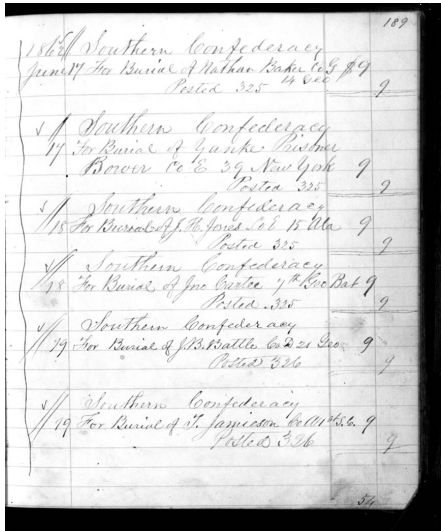 189
1862 // Southern Confederacy
June 17 For Burial of Nathan Baker Co G $9
14 Geo
Posted 325 9
// Southern Confederacy
17 For Burial of Yanke Prisoner
Bower Co E 39 New York 9
Posted 325 9
// Southern Confederacy
18 For Burial of J. H. Jones Co E 15 Ala 9
Posted 325 9
// Southern Confederacy
18 For Burial of Jno Carter 7th Geo Bat 9
Posted 325 9
// Southern Confederacy
19 For Burial of J. B. Battle Co D 21 Geo 9
Posted 326 9
// Southern Confederacy
19 For Burial of T. Jamieson Co A 1st S.C. 9
Posted 326 9
54